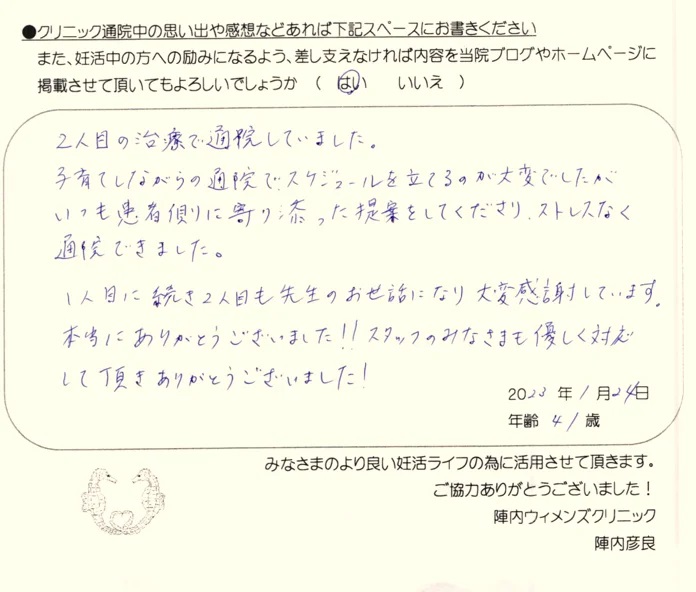 ●クリニック通院中の思い出や感想などあれば下記スペースにお書きください
また、妊活中の方への励みになるよう、差し支えなければ内容を当院ブログやホームページに
掲載させて頂いてもよろしいでしょうか （ はい いいえ ）
2人目の治療で通院していました。
子育てしながらの通院でスケジュールを立てるのが大変でしたが
いつも患者側りに寄り添った提案をしてくださり、ストレスなく
通院できました。
1人目に続き2人目も先生のお世話になり大変感謝しています。
本当にありがとうございました!!スタッフのみなさまも優しく対応
して頂きありがとうございました!
2023 年 1 月 24 日
年齢 41 歳
みなさまのより良い妊活ライフの為に活用させて頂きます。
ご協力ありがとうございました！
陣内ウィメンズクリニック
陣内彦良